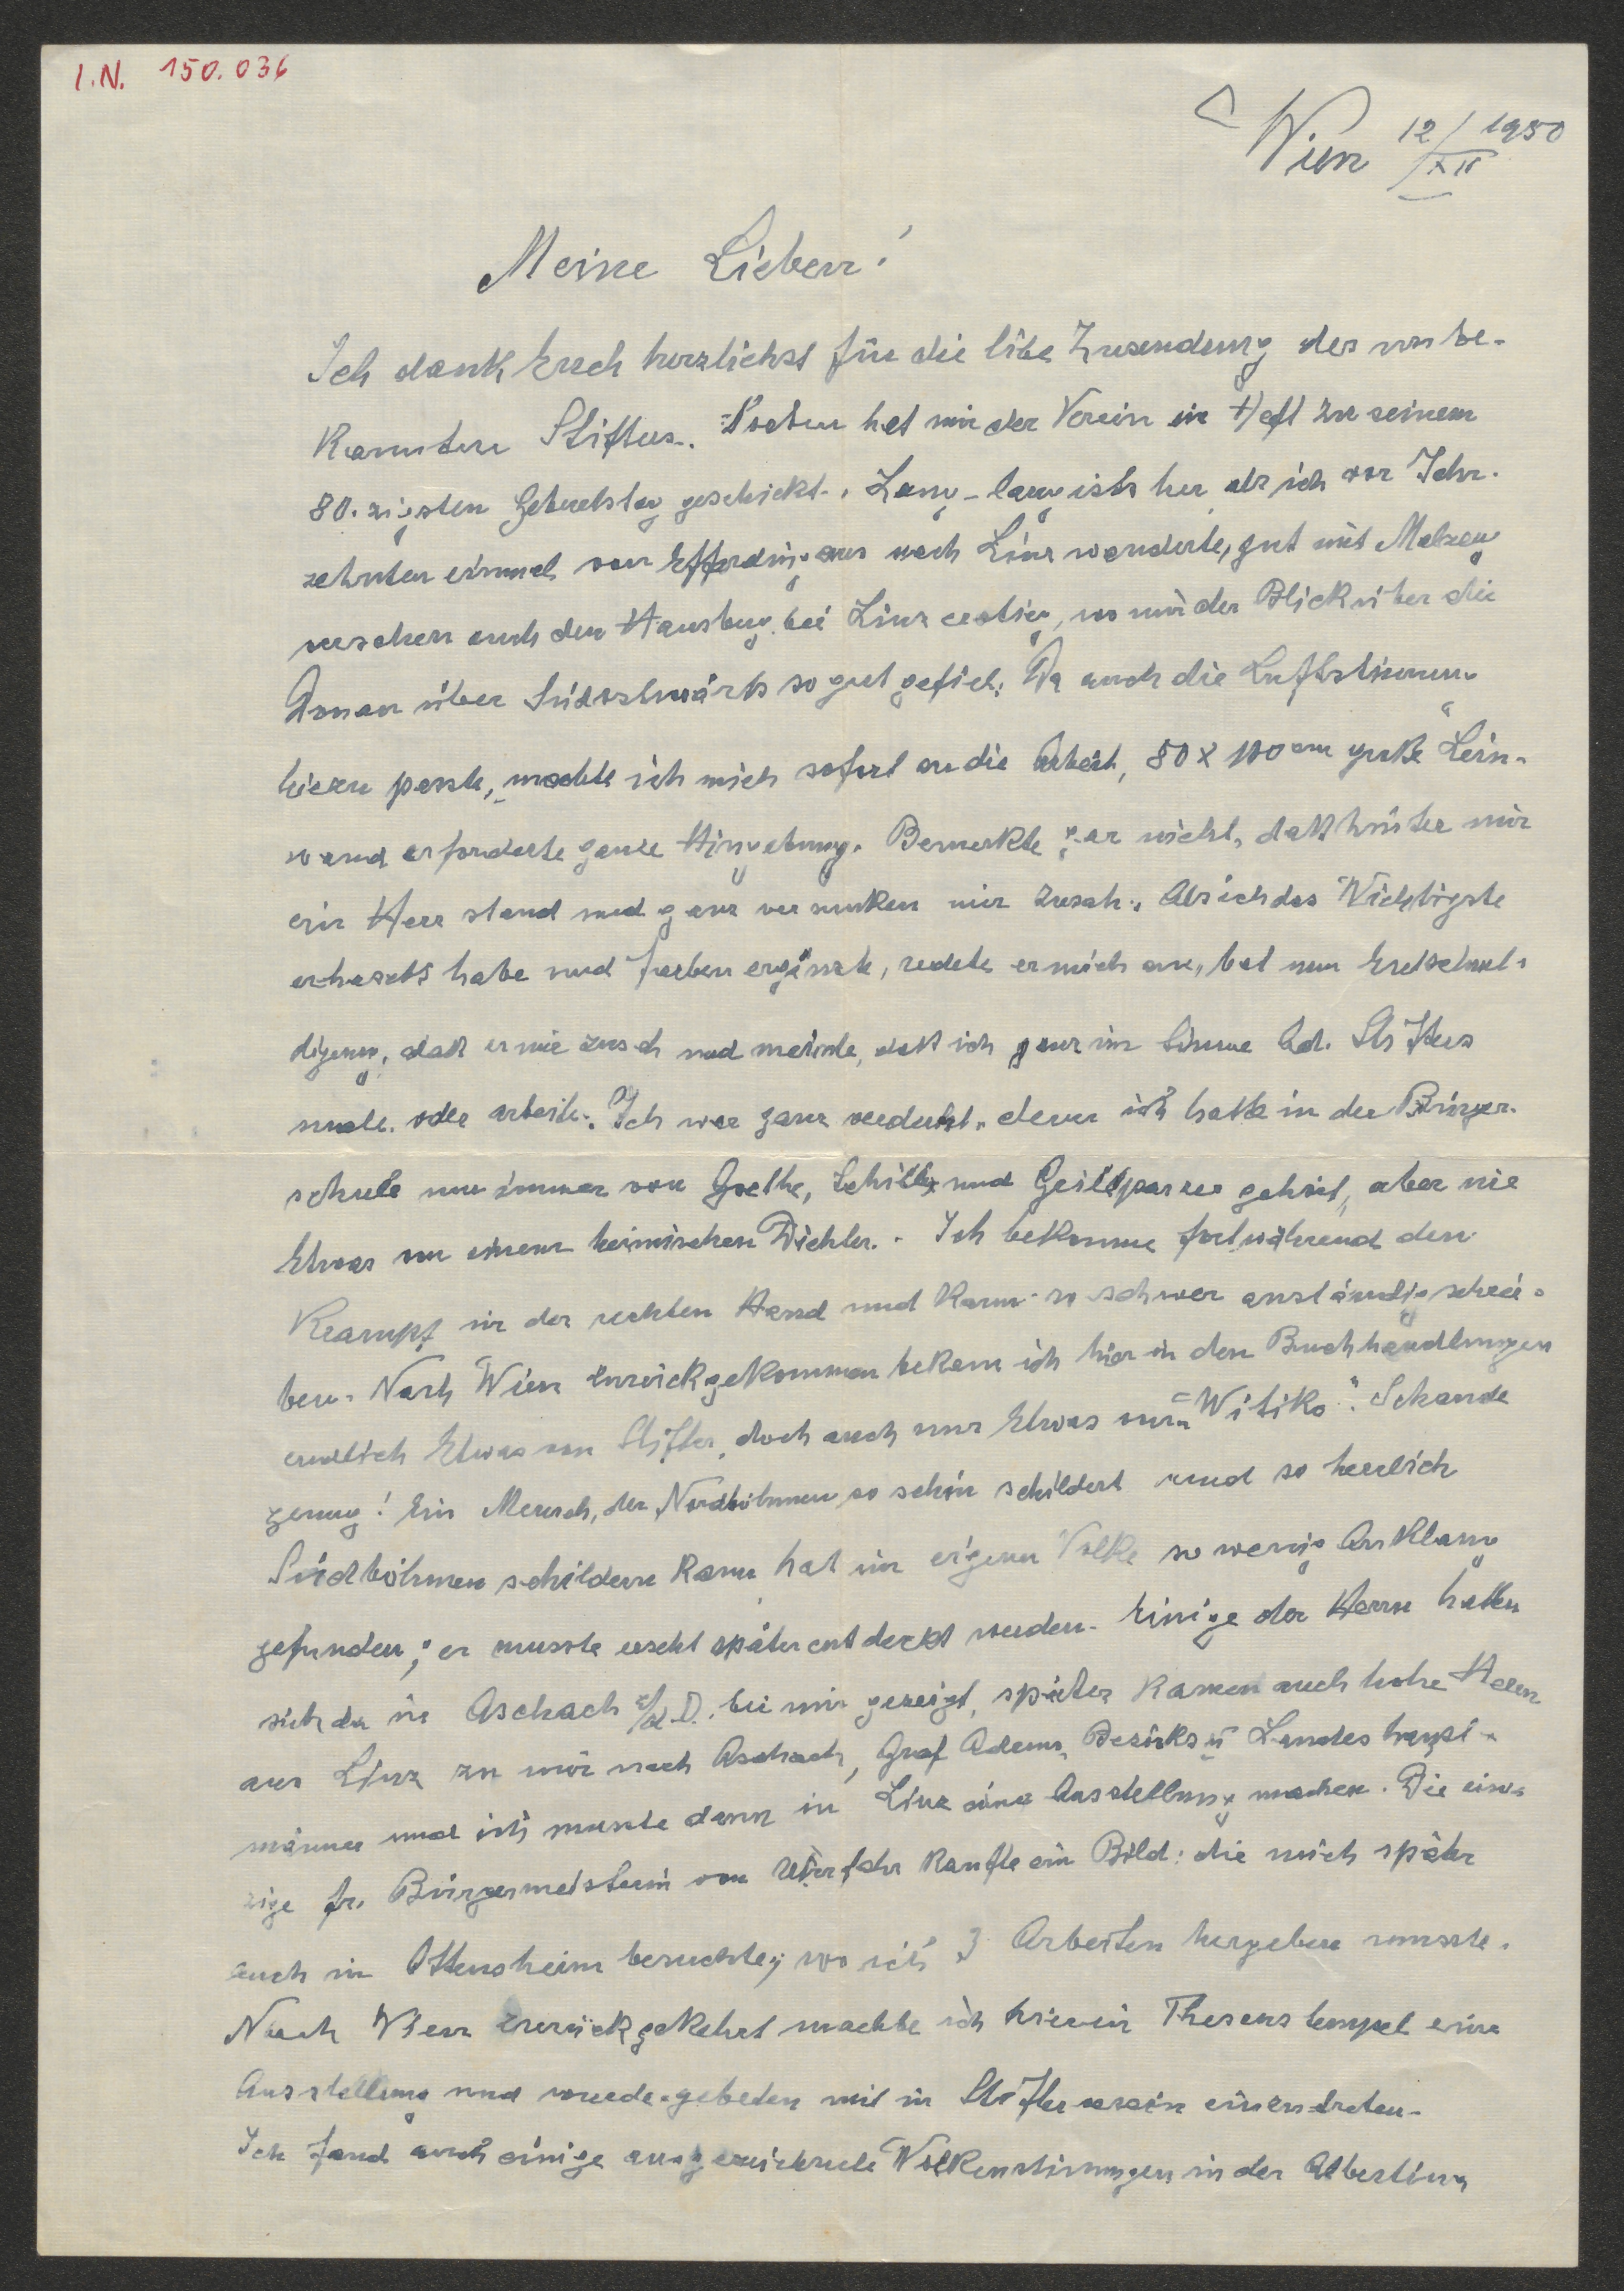 I.N. 150.036
Wien 12/XII 1950
Meine Lieben!
Ich dank Euch herzlichst für die liebe Zusendung des unbe-
kannten Stifters. Soeben hat mir der Verein ein Heft zu seinem
80.zigsten Geburtstag geschickt. Lang-lang ists her, als ich vor Jahr-
zehnten einmal von Efferding aus nach Linz wanderte, gut mit Malzeug
versehen auch den Hausberg bei Linz bestieg, wo mir der Blick über die
Donau über Südostwärts so gut gefiel. Da auch die Luftstimmung
hiezu passte, machte ich mich sofort an die Arbeit, 80 x 100 cm große Lein-
wand erforderte ganze Hingebung. Bemerkte gar nicht, daß hinter mir
ein Herr stand und ganz versunken mir zusah. Als ich das Wichtigste
erhascht habe und Farben ergänzte, redete er mich an, bat um Entschul-
digung, daß er mir zusah und meinte, daß ich ganz im Sinne Ad. Stifters
male oder arbeite. Ich war ganz verdutzt, denn ich hatte in der Bürger-
schule nur immer von Goethe, Schiller und Grillparzer gehört, aber nie
Etwas von einem heimischen Dichter. - Ich bekomme fortwährend den
Krampf in der rechten Hand und kann so schwer anständig schrei-
ben. Nach Wien zurückgekommen bekam ich hier in den Buchhandlungen
endlich Etwas von Stifter, doch auch nur Etwas von "Witiko". Schande
genug! Ein Mensch, der Nordböhmen so schön schildert und so herrlich
Südböhmen schildern kann hat im eigenen Volke so wenig Anklang
gefunden; er musste erscht später entdeckt werden. Einige der Herrn hatten
sich da in Aschach a/d D. bei mir gezeigt, später kamen auch hohe Herrn
aus Linz zu mir nach Aschach, Graf Adems, Bezirks u Landeshaupt-
männer und ich musste dann in Linz eine Ausstellung machen. Die ein-
zige fr. Bürgermeisterin von Uhrfahr kaufte ein Bild: die mich später
auch in Ottensheim besuchte, wo ich 3 Arbeiten hergeben musste.
Nach Wien zurückgekehrt machte ich hier im Theseustempel eine
Ausstellung und wurde gebeten mit in Stifterverein einzutreten.
Ich fand auch einige ausgezeichnete Wolkenstimungen in der Albertina